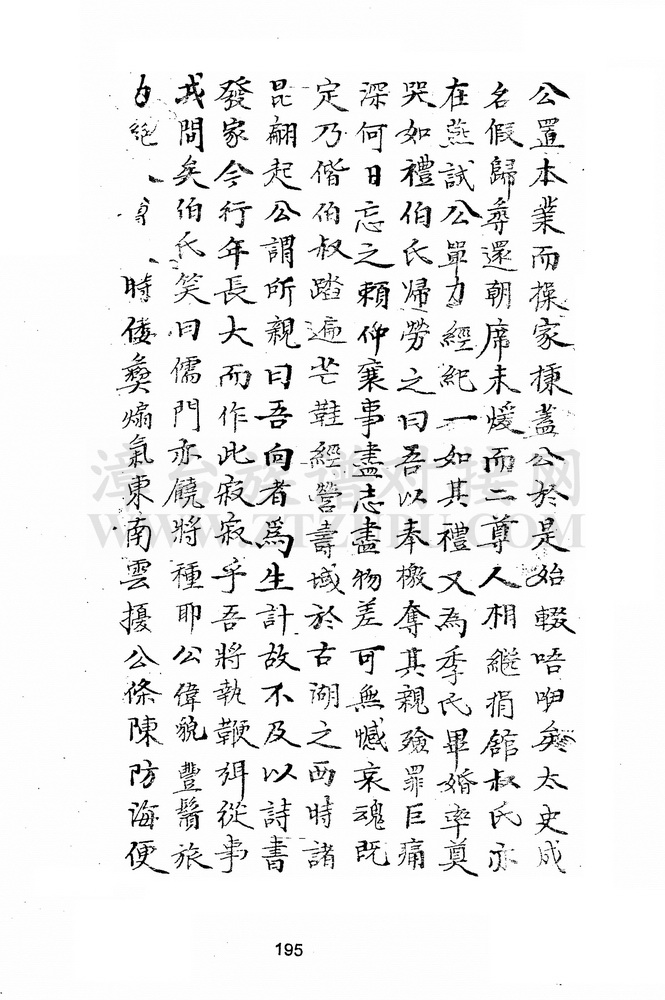 公置本業而操家秉蓋公於是始輟唔咿矣太史成
名假歸尋還朝席未煖而二尊人相繼捐舘叔氏亦
在燕試公單力經紀一如其禮又為季氏畢婚率奠
哭如禮伯氏歸勞之曰吾以奉檄奪其親殮罪巨痛
深何日忘之賴仲襄事盡志盡物差可無憾哀魂既
定乃偕伯叔踏遍芒鞋經營壽域於古湖之西時諸
昆翩起公謂所親曰吾向者為生計故不及以詩書
發家今行年長大而作此寂寂乎吾將執鞭弭從事
戎間矣伯氏笑曰儒門亦饒將種耶公偉貌豐鬚旅
力絕 時倭燹煽氣東南雲擾公條陳防海便
漳台族譜对接网
WWW.ZTZUPU.COM
195